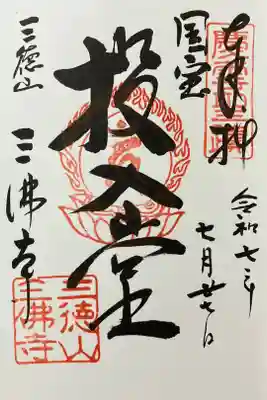 奉拝
令和七年
七月廿七日
国宝
投入堂
三徳山
三佛寺
三徳山
三佛寺